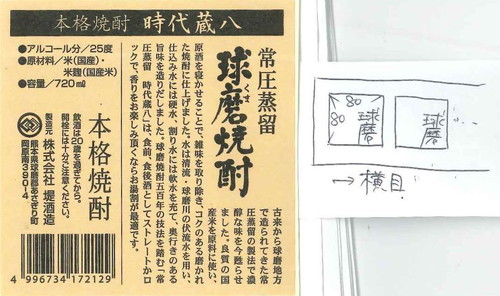 本格焼酎 時代蔵八
●アルコール分／25度
●原材料／米（国産）・
米麹（国産米）
●容量／720㎖
常圧蒸留
球磨焼酎
くま
古来から球磨地方
で造られてきた常
圧蒸留の製法で濃
醇な味を今甦らせ
ました。良質の国
産米を原料に使い、
原酒を寝かせることで、雑味を取り除き、コクのある磨かれ
た焼酎に仕上げました。水は清流・球磨川の伏流水を用い、
仕込み水には硬水、割り水には軟水を充て、奥行きのある
旨味を造りだしました。球磨焼酎五百年の技法を踏む「常
圧蒸留 時代蔵八」は、食前、食後酒としてストレートかロ
ックで、香りをお楽しみ頂くならお湯割が最適です。
本格焼酎
飲酒は20歳を過ぎてから。
開栓には十分ご注意ください。
製造元 株式会社 堤酒造
熊本県球磨郡あさぎり町
岡原南390-4
4 996734 172129
80
80
球磨
球磨
→横目